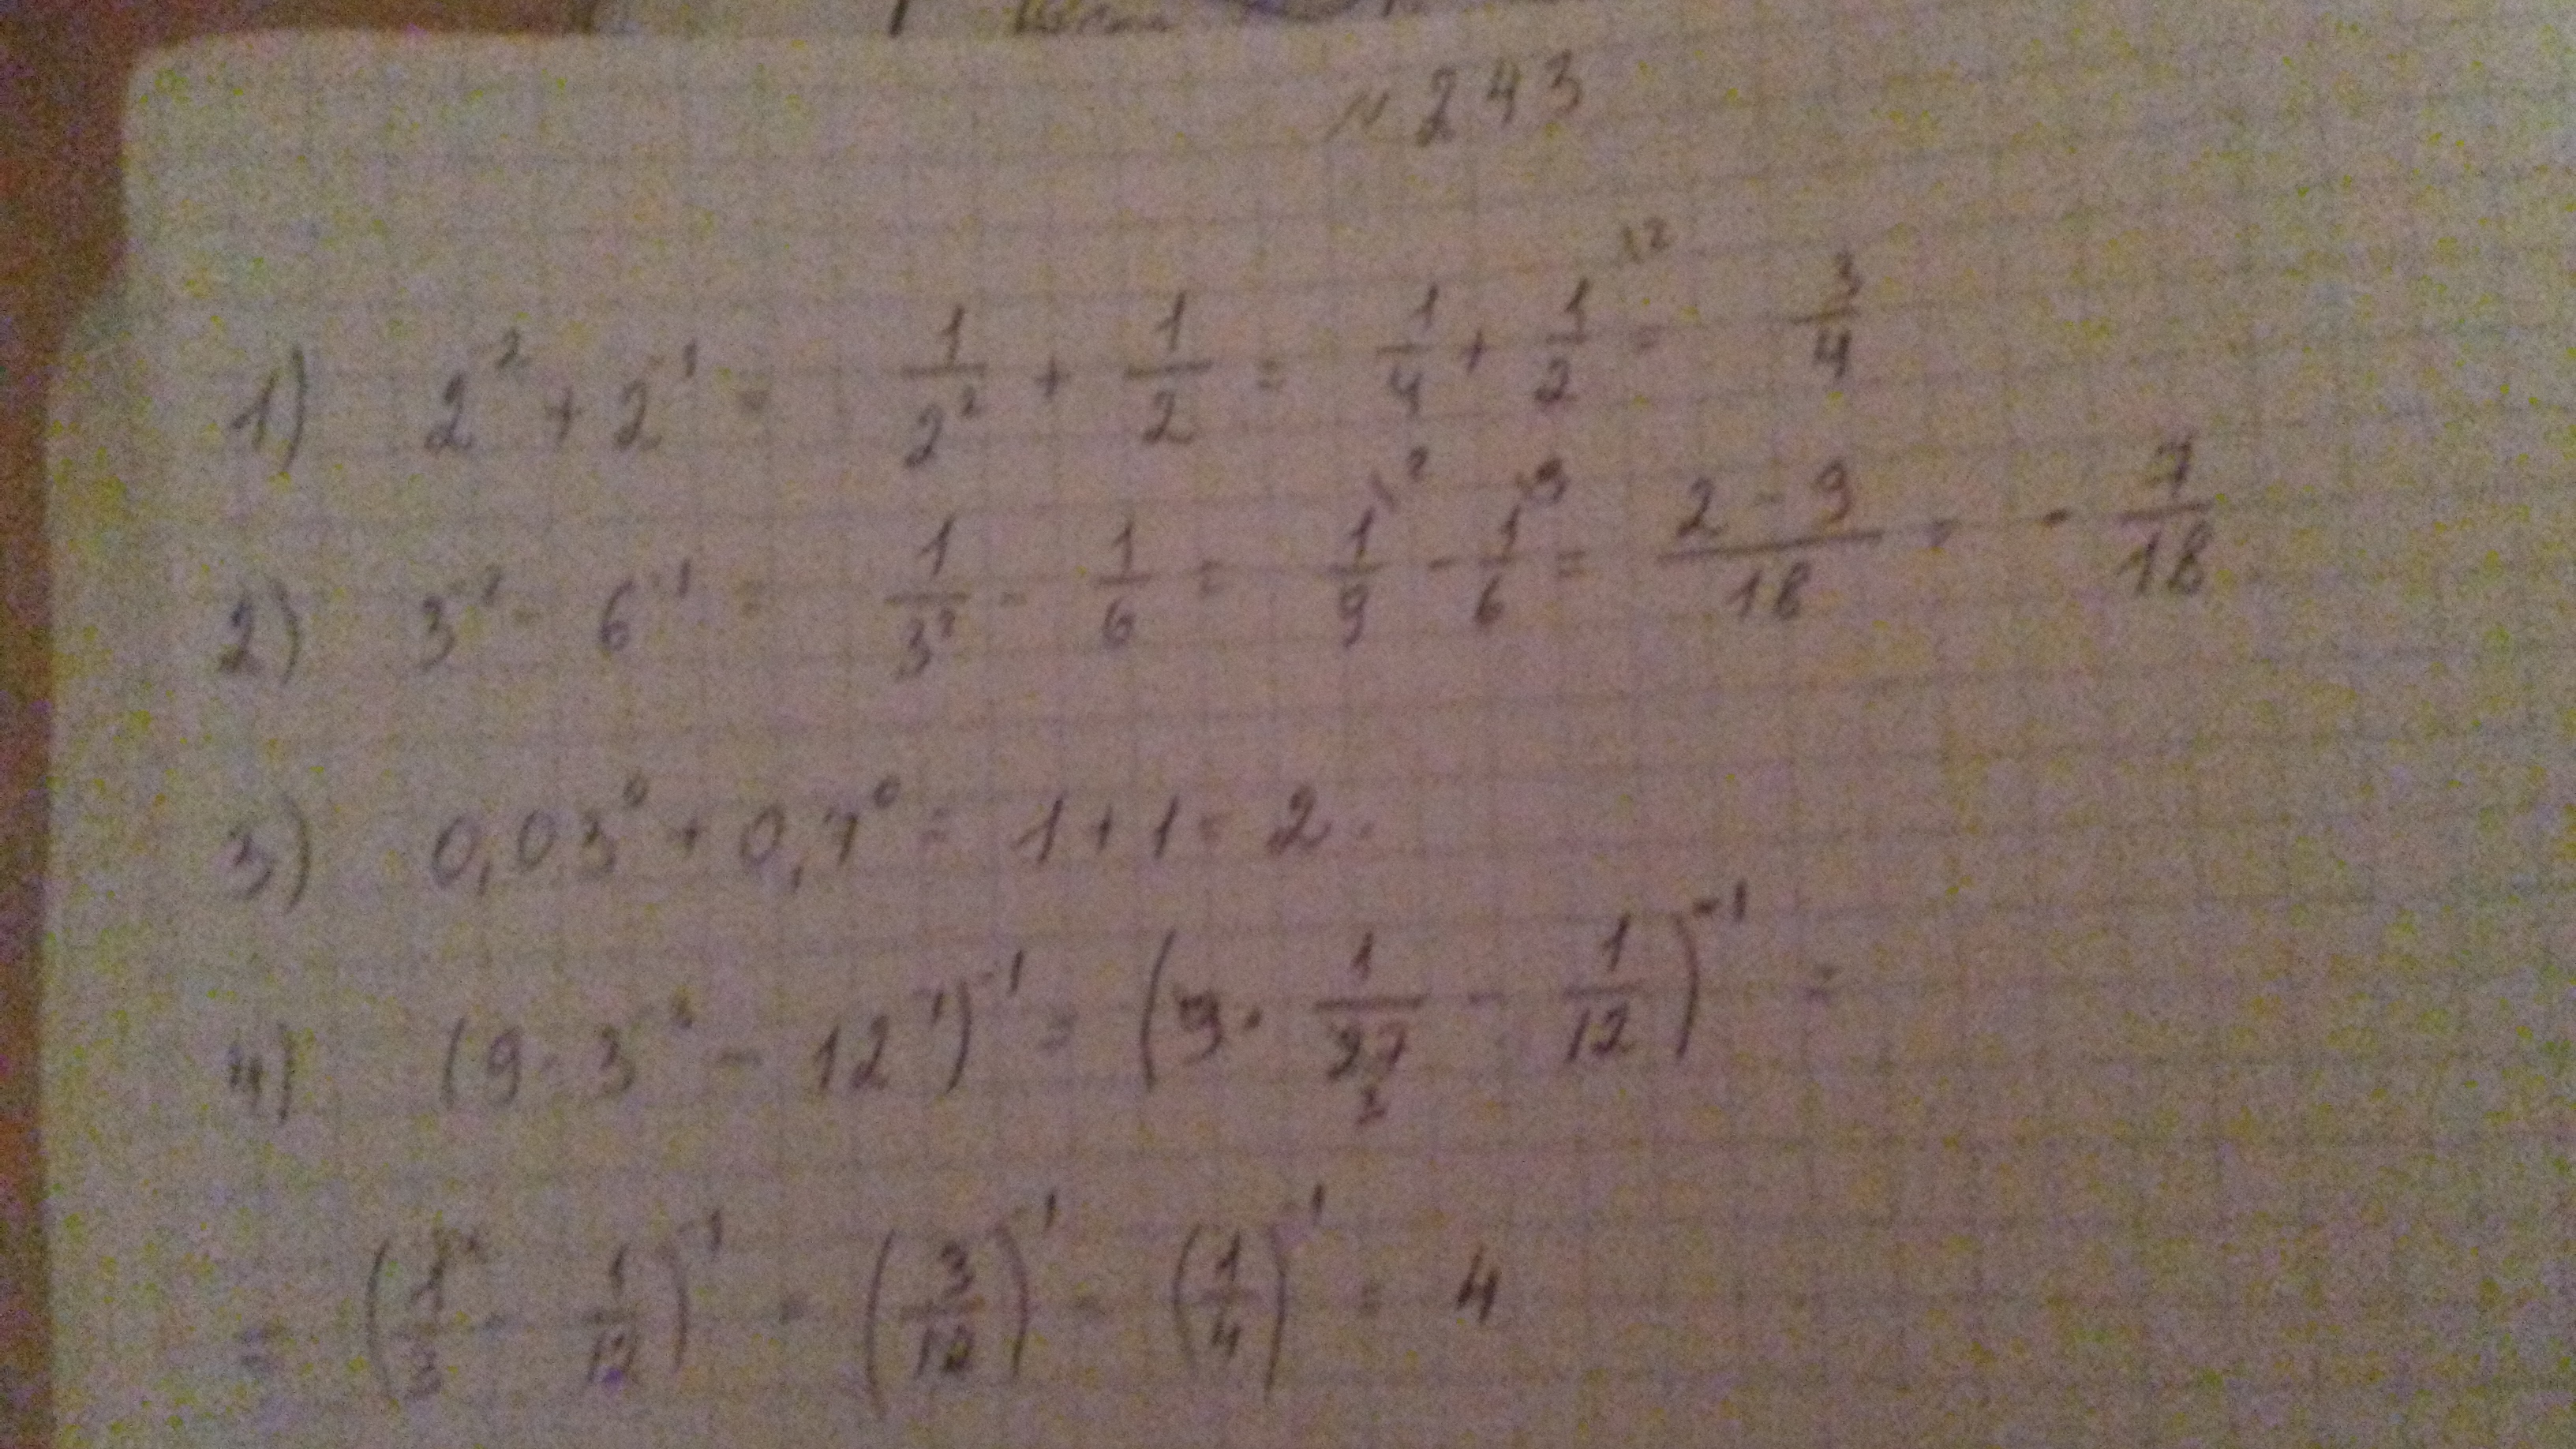 № 243
1) 2⁻² + 2⁻¹ = 1/2² + 1/2 = 1/4 + 1/2^\2 = 3/4
2) 3⁻² - 6⁻¹ = 1/3² - 1/6 = 1/9^\2 - 1/6^\9 = (2 - 9)/18 = - 7/18
3) 0,03⁰ + 0,7⁰ = 1 + 1 = 2.
4) (9 · 3⁻³ - 12⁻¹)⁻¹ = (9 · 1/27 - 1/12)⁻¹ =
= (1/3 - 1/12)⁻¹ = (3/12)⁻¹ = (1/4)⁻¹ = 4